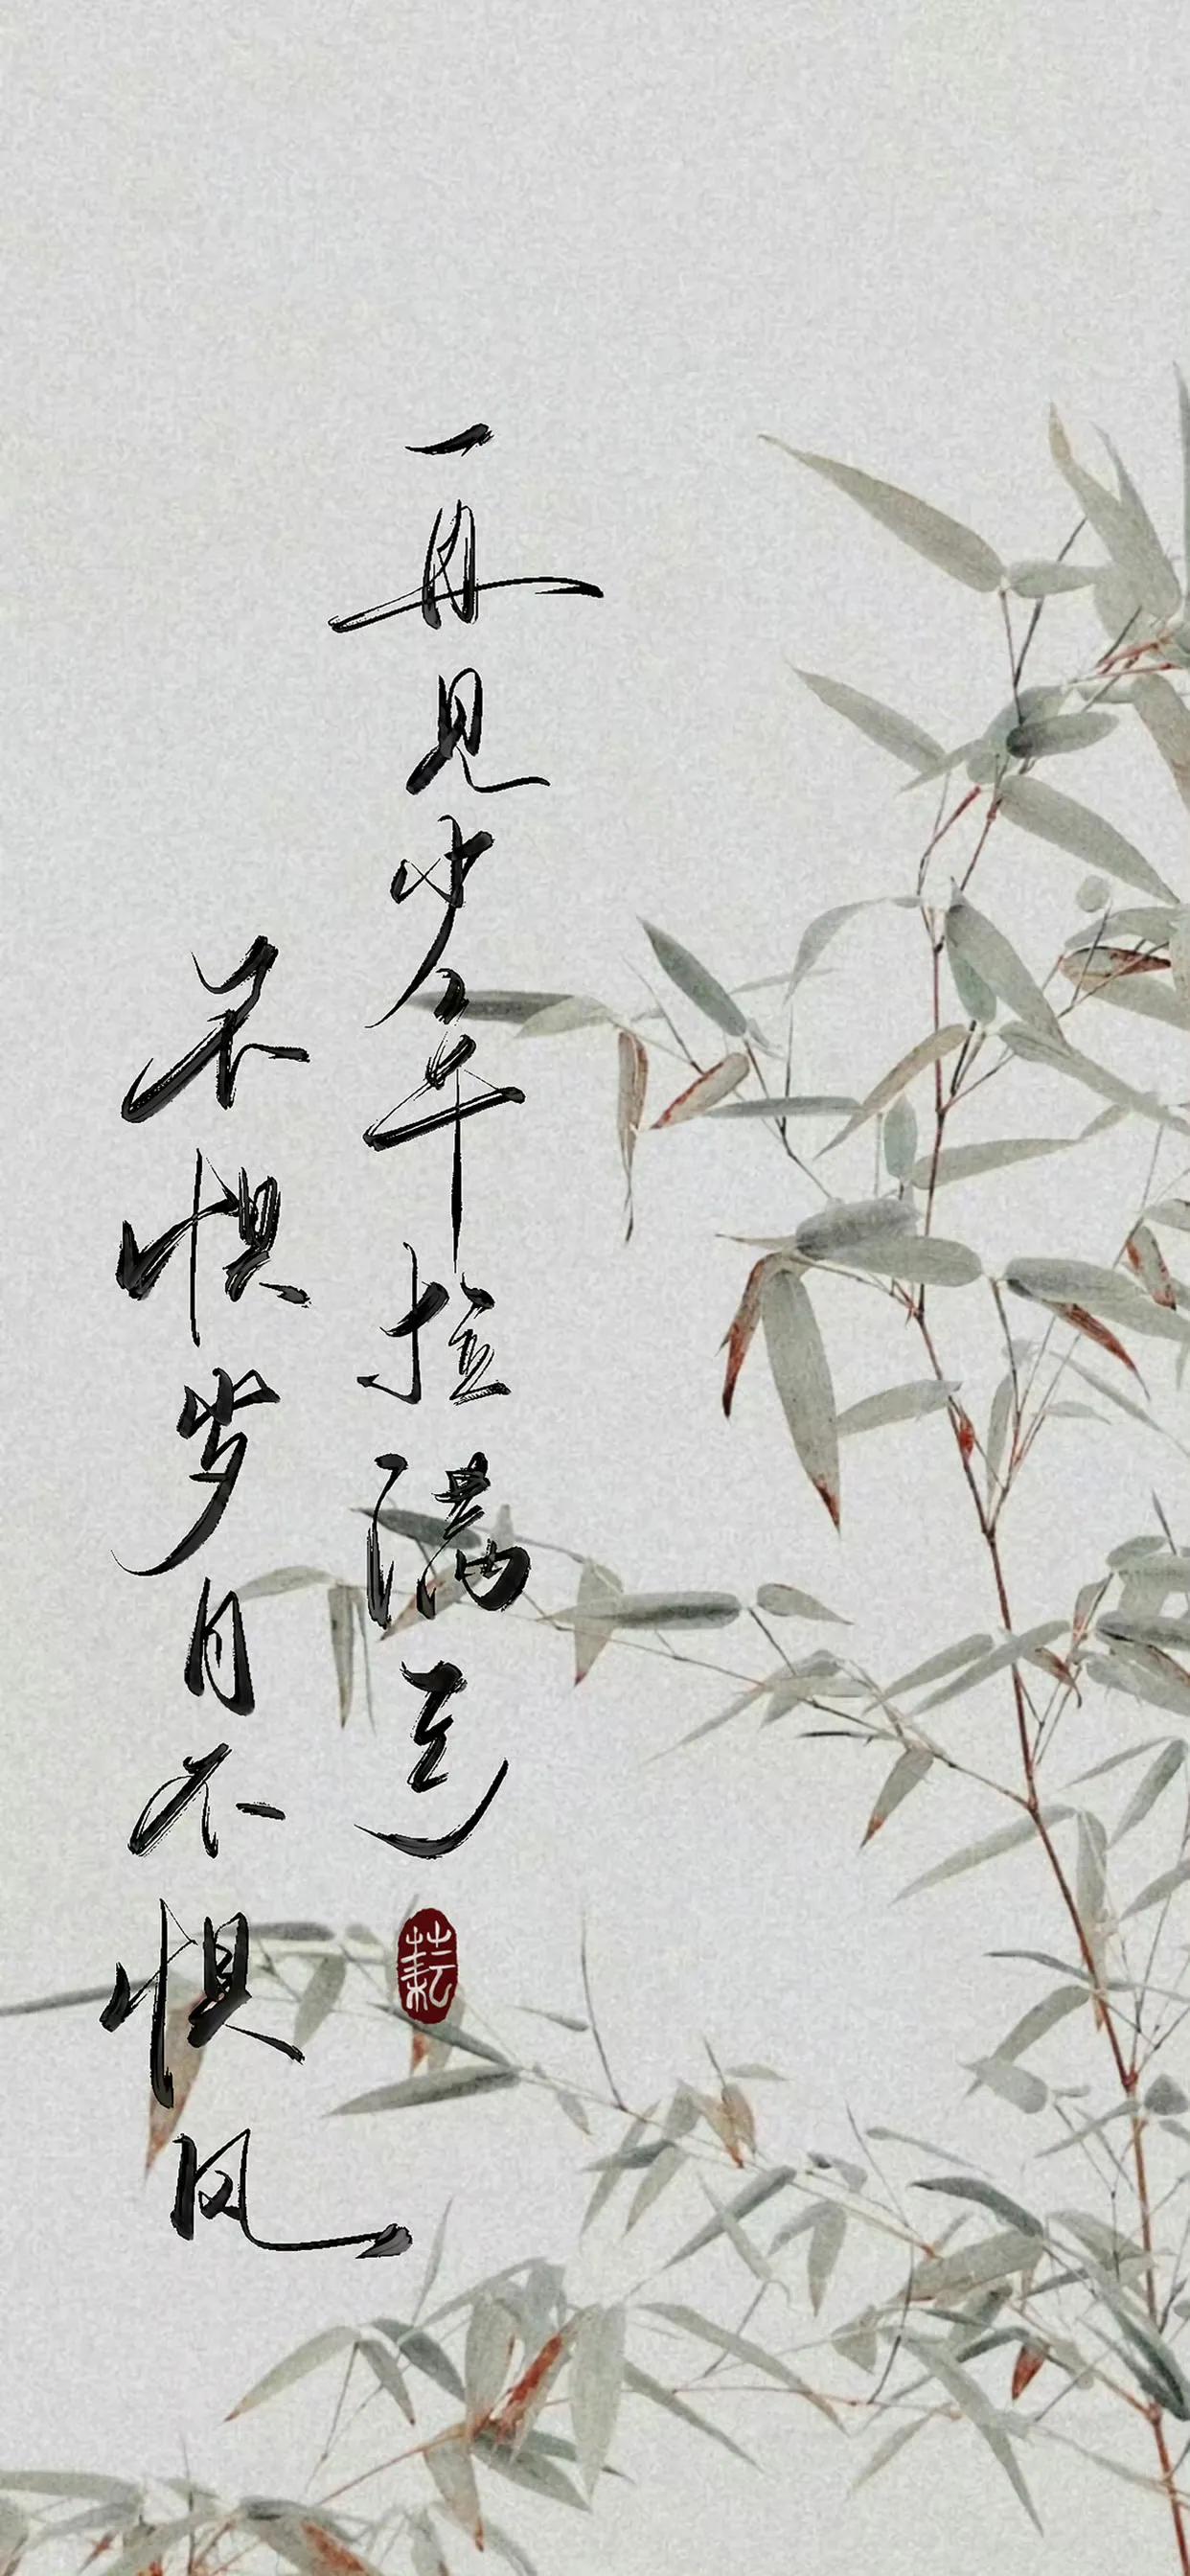 再见少年拉满弓
不惧岁月不惧风